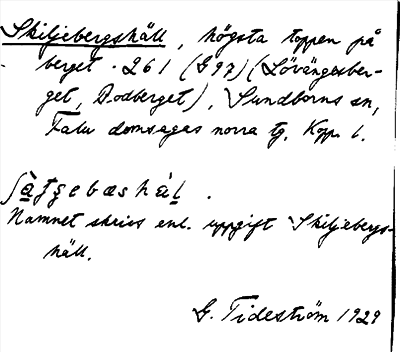 Skiljebergshäll, högsta toppen på
berget. 261 (G97) (Lövängesber-
get, Dodberget), Sundborns sn,
Falu domsagas norra tg. Kopp. l.
Namnet skrives enl. uppgift Skiljebergs-
häll.
G. Tideström 1929